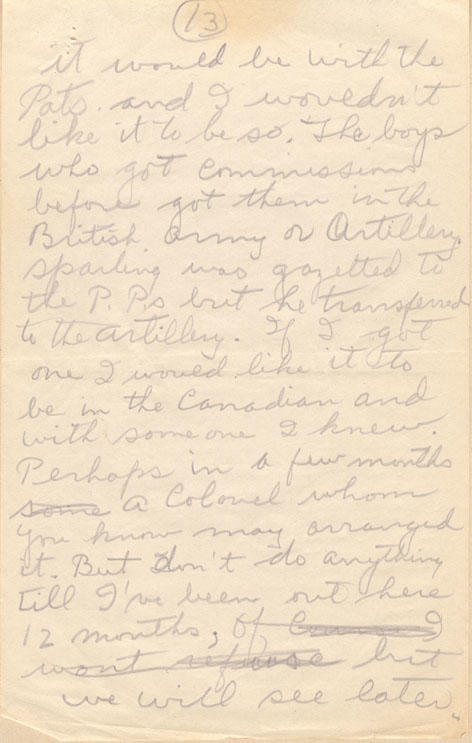 13
it would be with the
Pats. and I wouldn't
like it to be so. The boys
who got commissions
before got them in the
British Army or Artillery.
Sparling was gazetted to
the P.P.s but he transferred
to the artillery. If I got
one I would like it to
be in the Canadian and
with someone I knew.
Perhaps in a few months
some a Colonel whom
you know may arranged
it. But don't do anything
till I've been out here
12 months, Of Course I
wont refuse but
we will see later.